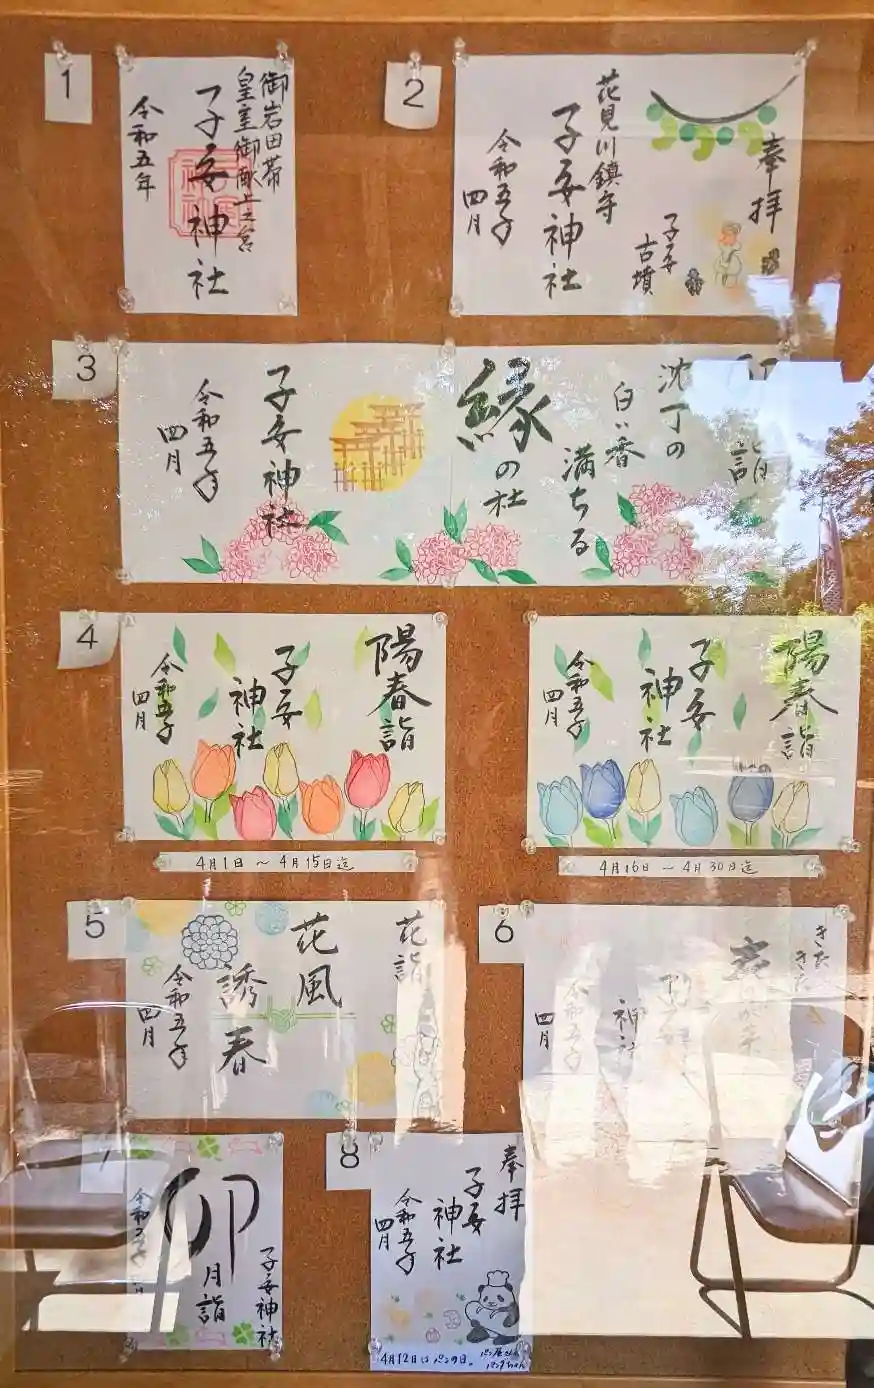 1
御岩田帯
皇室御献上之宮
子安神社
令和五年
2
奉拝
子安
古墳
花見川鎮守
子安神社
令和五年
四月
3
卯
詣
沈丁の
白い香
満ちる
縁の杜
子安神社
令和五年
四月
4
陽春詣
子安
神社
令和五年
四月
4月1日 〜 4月15日迄
陽春詣
子安
神社
令和五年
四月
4月16日 〜 4月30日迄
5
花詣
花風
誘春
令和五年
四月
6
きた
きた
神社
令和五年
四月
7
卯
月詣
子安神社
令和五年
8
奉拝
子安
神社
令和五年
四月
4月12日はパンの日。
パン屋さん
パンダちゃん